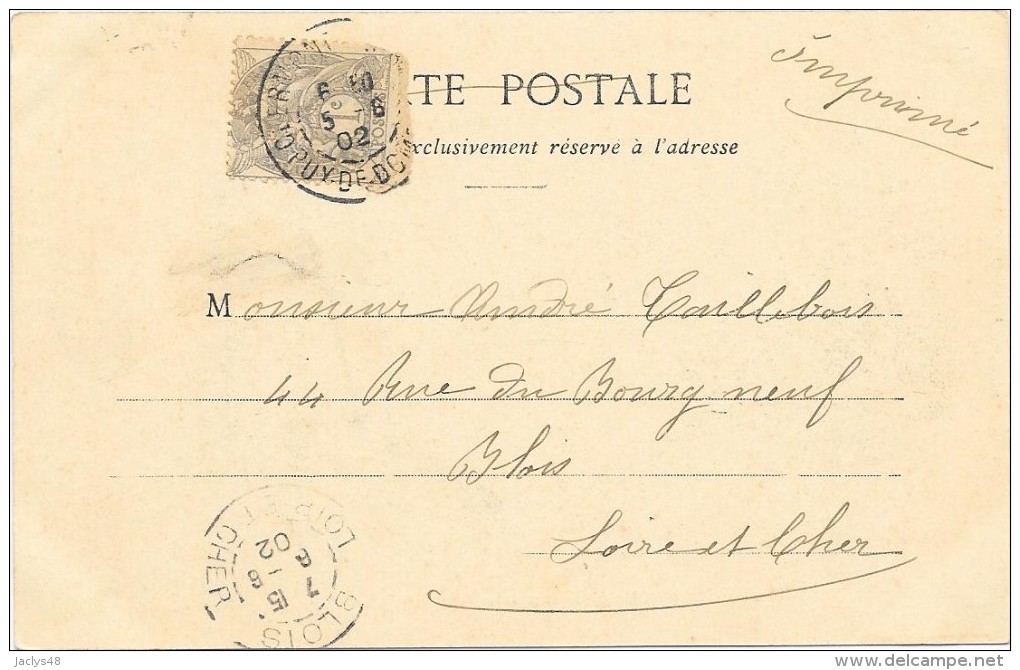 Imprimé
RTE POSTALE
xclusivement réservé à l'adresse
CLERMONT
6 50
5 - 8
02
PUY-DE-DOME
1c
POSTES
Monsieur André Taillebois
44 Rue du Bourg neuf
Blois
Loire et Cher
BLOIS
15
7 - 8
8
02
LOIR ET CHER
Jaclys48
delcampe.net